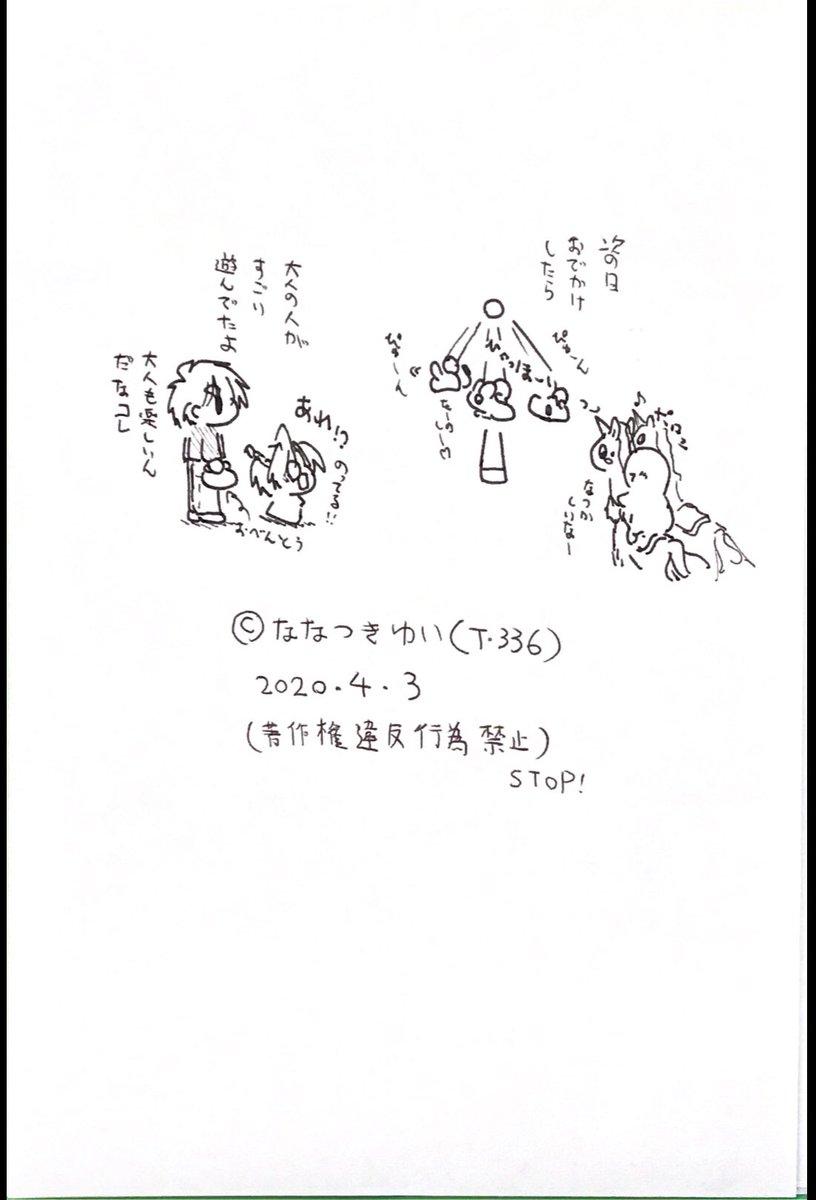 次の日
おでかけ
したら
ぴゅーん
ひゃっほーい
ぴゅーん
なーのー♡
♪
ポロン
なつか
しいなー
大人の人が
すごい
遊んでたよ
あれ!?
のってる!!
大人も楽しいん
だなコレ
おべんとう
©ななつきゆい(T.336)
2020.4.3
(著作権違反行為禁止)
STOP!